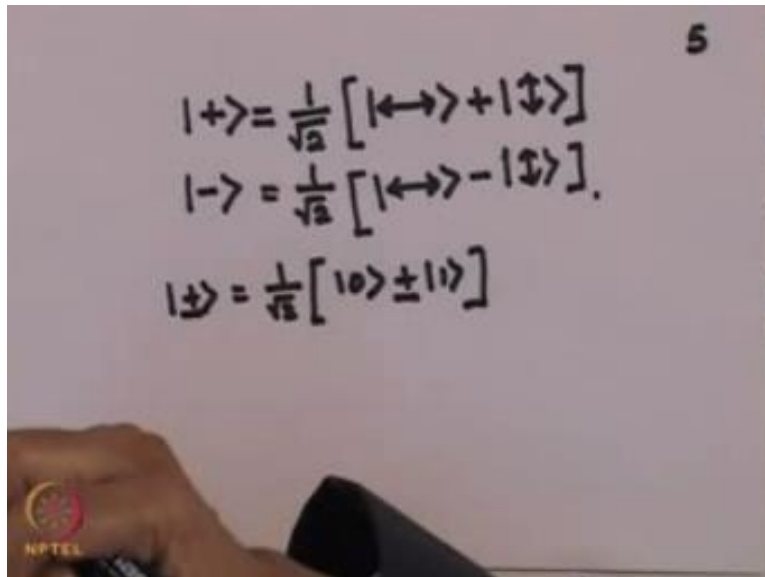 5
|+> = 1/√2 [|↔> + |↕>]
|−> = 1/√2 [|↔> − |↕>].
|±> = 1/√2 [|0> ± |1>]
NPTEL